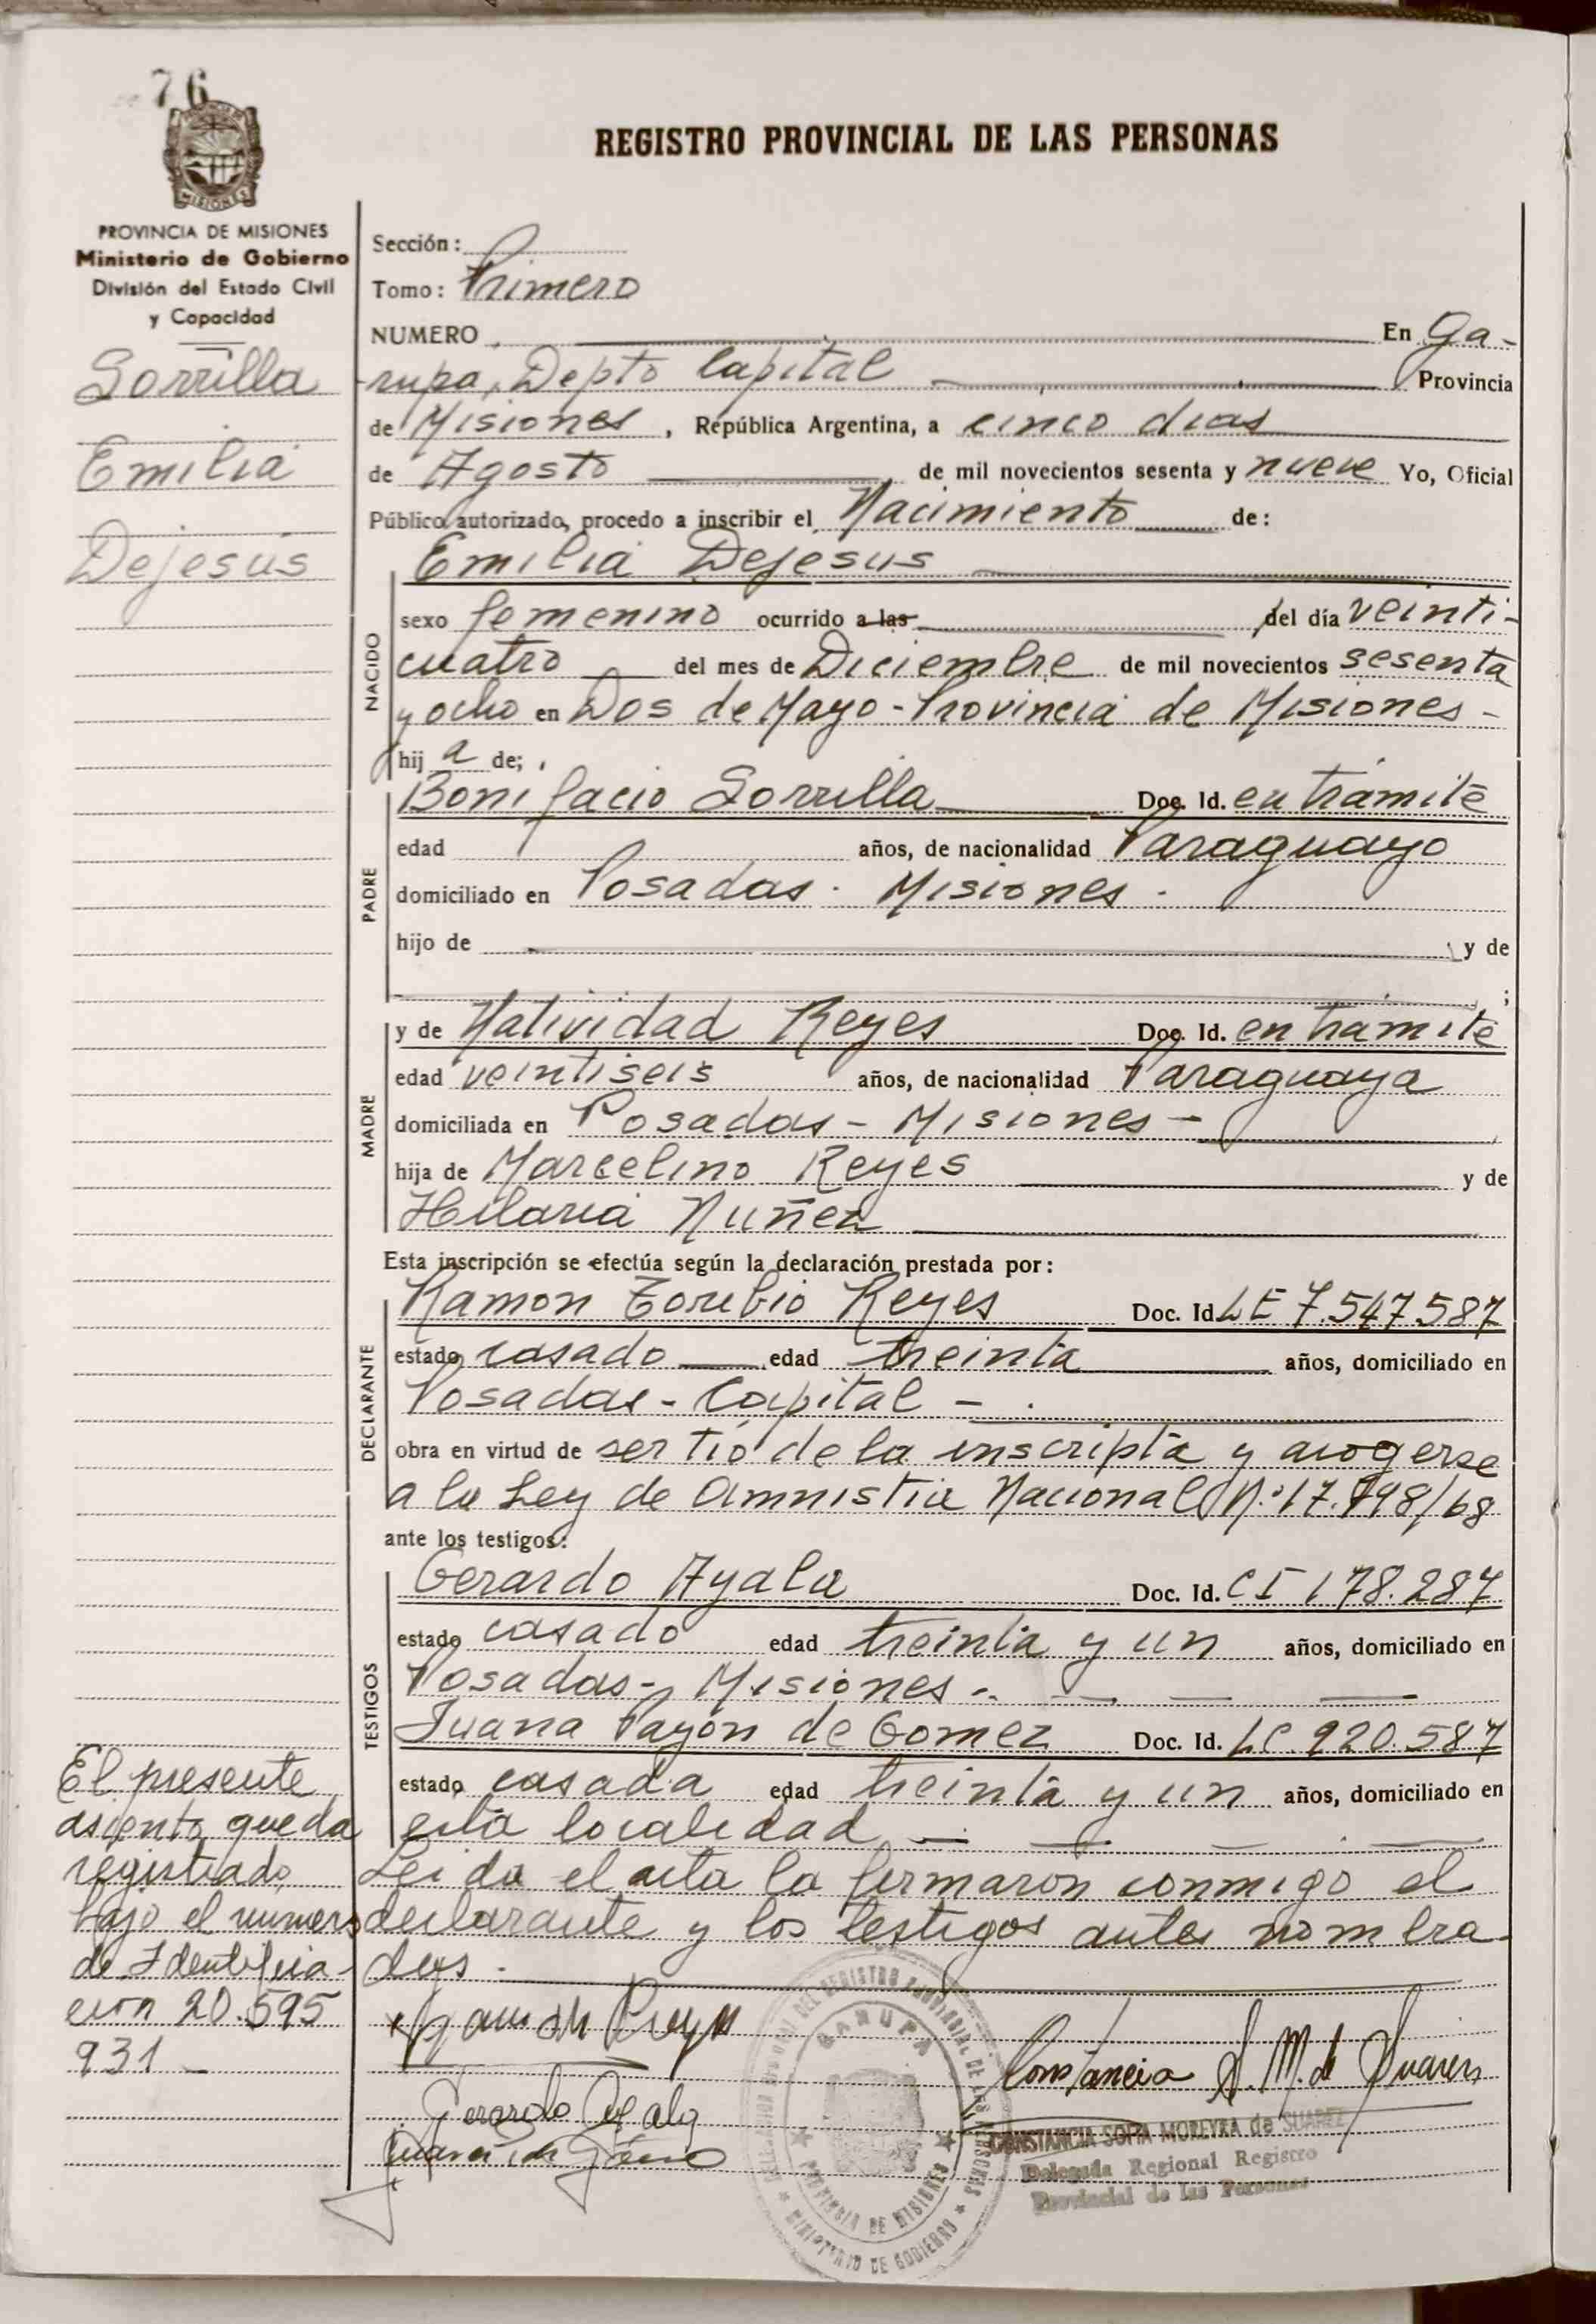 76
MISIONES
PROVINCIA DE MISIONES
Ministerio de Gobierno
División del Estado Civil
y Capacidad
Sorrilla
Emilia
Dejesús
REGISTRO PROVINCIAL DE LAS PERSONAS
Sección:
Tomo: Primero
NUMERO En Ga-
rupa, Depto Capital Provincia
de Misiones, República Argentina, a cinco dias
de Agosto de mil novecientos sesenta y nueve Yo, Oficial
Público autorizado, procedo a inscribir el Nacimiento de:
Emilia Dejesus
NACIDO
sexo femenino ocurrido a las del día veinti-
cuatro del mes de Diciembre de mil novecientos sesenta
y ocho en Dos de Mayo - Provincia de Misiones -
hij a de;
PADRE
Bonifacio Sorrilla Doc. Id. en trámite
edad años, de nacionalidad Paraguayo
domiciliado en Posadas - Misiones -
hijo de y de
;
MADRE
y de Natividad Reyes Doc. Id. en trámite
edad veintiseis años, de nacionalidad Paraguaya
domiciliada en Posadas - Misiones -
hija de Marcelino Reyes y de
Hilaria Nuñez
Esta inscripción se efectúa según la declaración prestada por:
DECLARANTE
Ramon Toribio Reyes Doc. Id. LE 7.547.587
estado casado edad treinta años, domiciliado en
Posadas - Capital -
obra en virtud de ser tio de la inscripta y acogerse
a la Ley de Amnistia Nacional N° 17.798/68
ante los testigos:
TESTIGOS
Gerardo Ayala Doc. Id. CI 178.287
estado casado edad treinta y un años, domiciliado en
Posadas - Misiones -
Juana Payon de Gomez Doc. Id. LC. 920.587
estado casada edad treinta y un años, domiciliado en
esta localidad
Leida el acta la firmaron conmigo el
declarante y los testigos antes nombra-
dos.
El presente
asiento queda
registrado
bajo el numero
de Identifica-
cion 20.595
931
Gerardo Ayala
Constancia S. M. de Suarez
CONSTANCIA SOFIA MOREYRA de SUAREZ
Delegada Regional Registro
Provincial de las Personas
DEL REGISTRO PROVINCIAL DE LAS PERSONAS
GARUPA
PROVINCIA DE MISIONES
MINISTERIO DE GOBIERNO